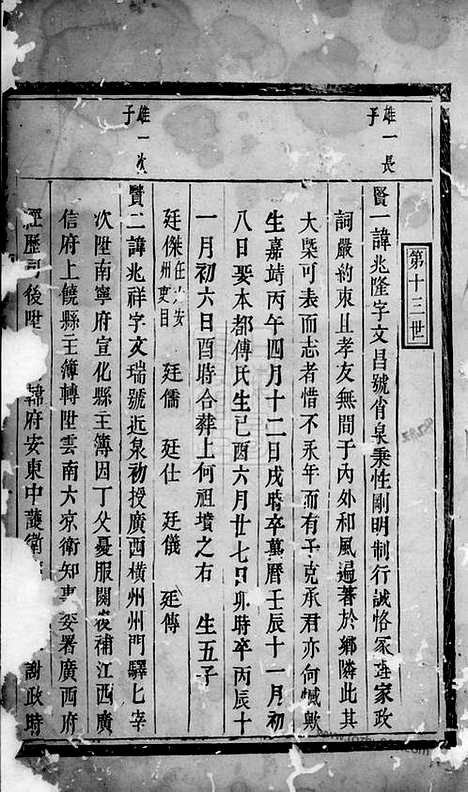 第十三世
雄一長子
賢一諱兆隆字文昌號肖泉秉性剛明制行誠恪冢理家政
詞嚴約束且孝友無間于內外和風遍著於鄉隣此其
大槩可表而志者惜不永年而有子克承君亦何憾歟
生嘉靖丙午四月十二日戌時卒萬曆壬辰十一月初
八日娶本都傅氏生己酉六月廿七日卯時卒丙辰十
一月初六日酉時合葬上何祖墳之右 生五子
廷傑任六安州吏目 廷儒 廷仕 廷儀 廷傳
雄一次子
賢二諱兆祥字文瑞號近泉初授廣西橫州州門驛宰
次陞南寧府宣化縣主簿因丁父憂服闋復補江西廣
信府上饒縣主簿轉陞雲南大凉衛知事委署廣西府
經歷司後陞 韓府安東中護衛 謝政時